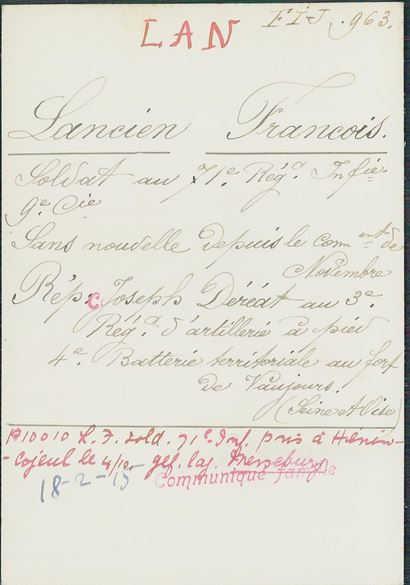 LAN
FIJ. 963.
Lancien Francois.
Soldat au 71e Régt Infie
9e Cie
Sans nouvelle depuis le comment de
Novembre
Rép: C Joseph au 3e
Régt d'artillerie à pied
4e Batterie territoriale au fort
de Vaujours.
(Seine et Oise)
P10010 L. F. sold. 71e Inf. pris à Hénin-
-Cojeul le 4/10. gef. lag. Merseburg
18-2-15 Communiqué famille